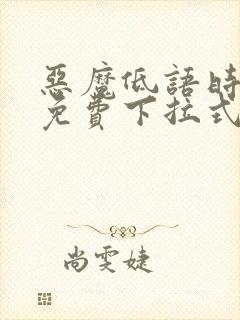 惡魔低語時
免費下拉式
尚雯婕